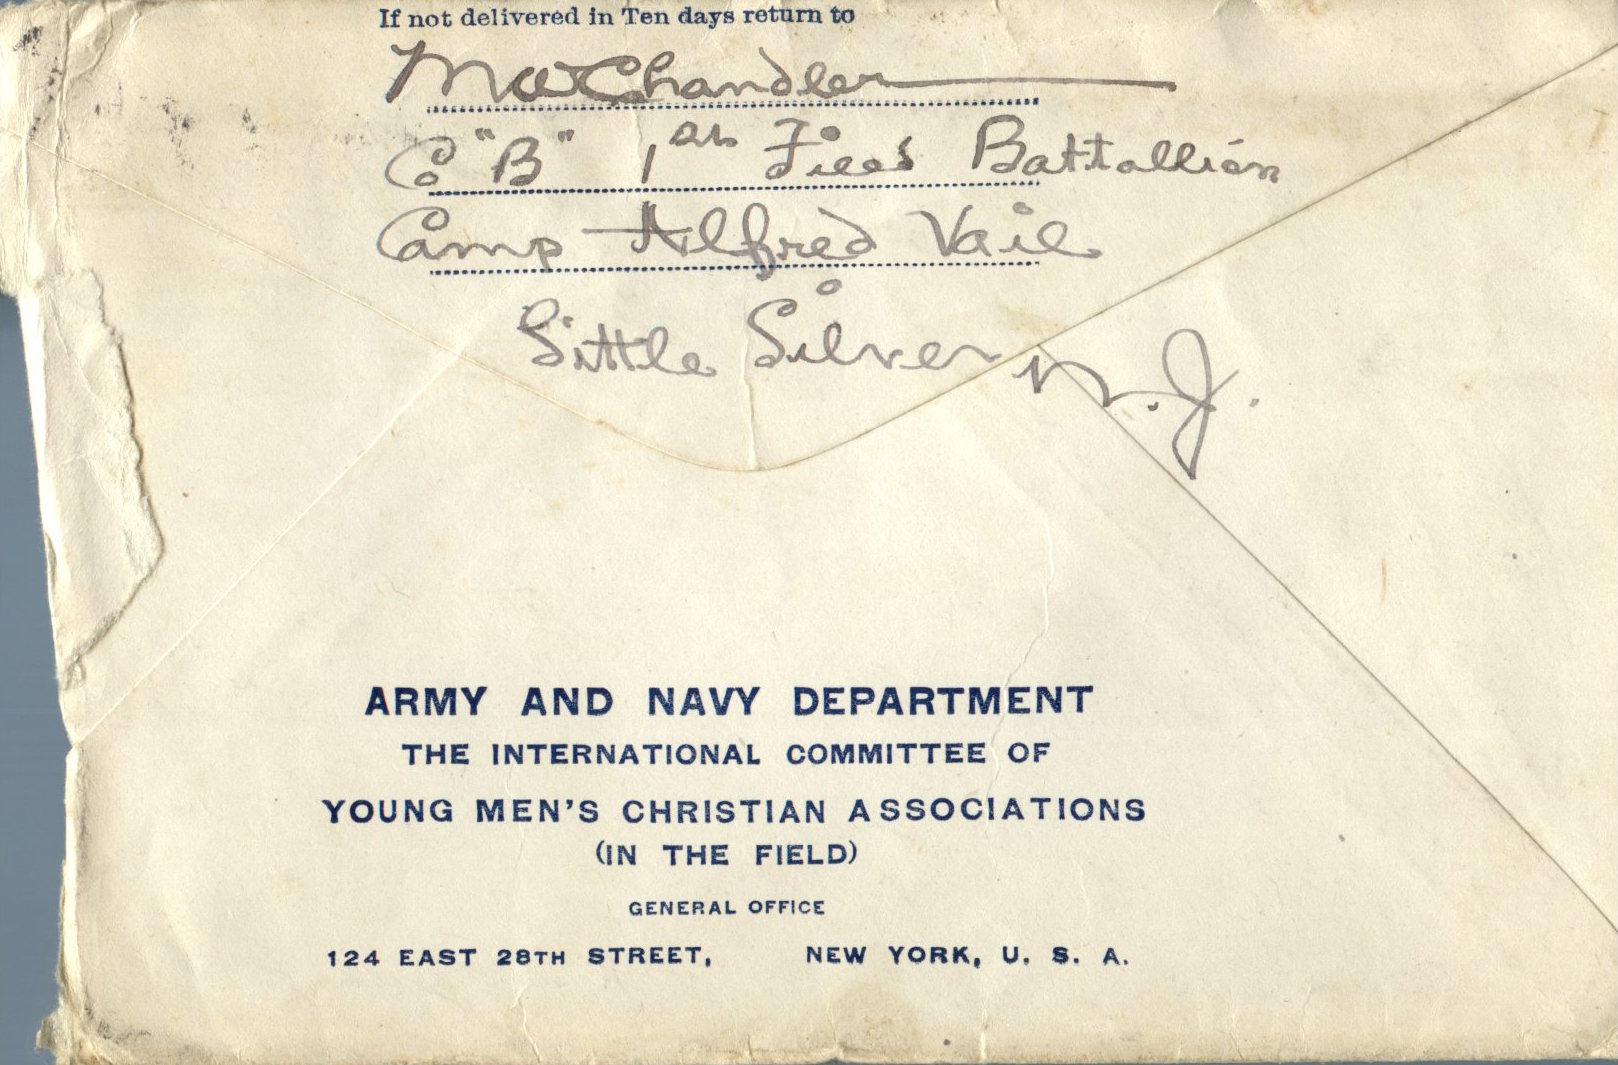 If not delivered in Ten days return to
MW Chandler
Co "B" 1st Field Battallion
Camp Alfred Vail
Little Silver N.J.
ARMY AND NAVY DEPARTMENT
THE INTERNATIONAL COMMITTEE OF
YOUNG MEN'S CHRISTIAN ASSOCIATIONS
(IN THE FIELD)
GENERAL OFFICE
124 EAST 28TH STREET, NEW YORK, U. S. A.